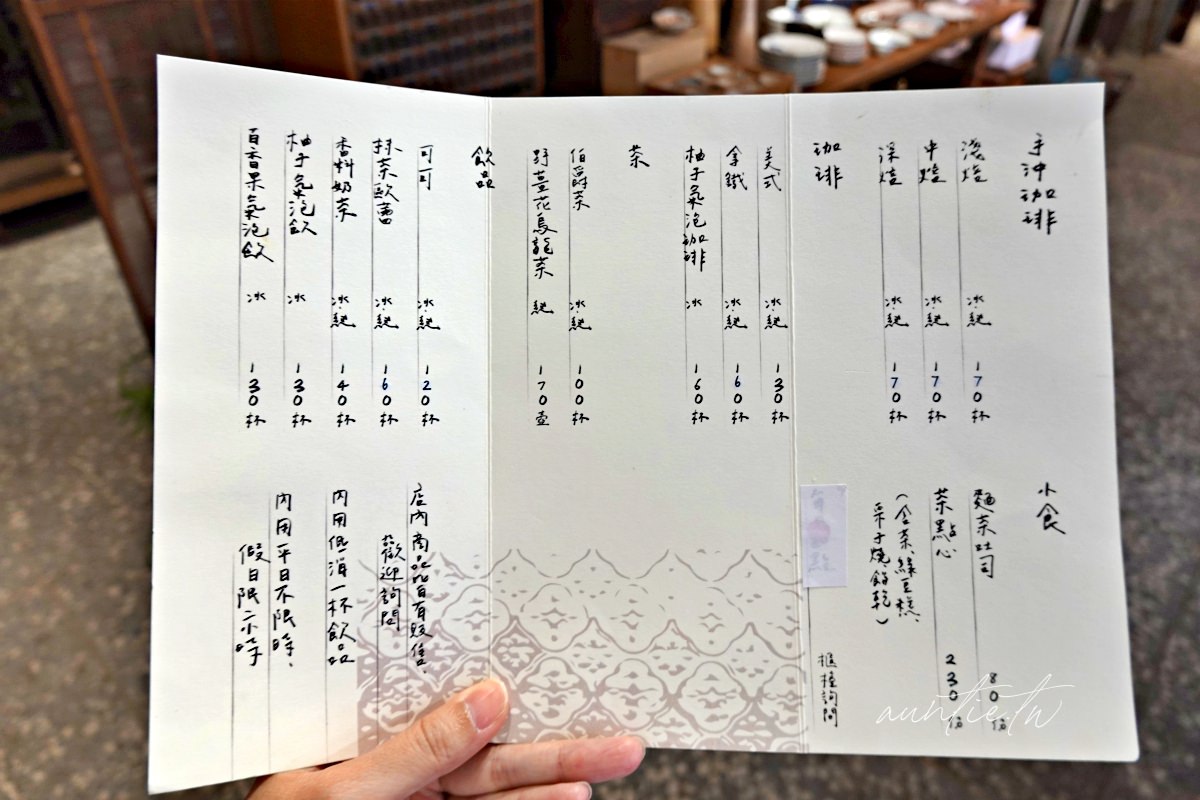 手沖咖啡
淺焙 冰.純 170杯
中焙 冰.純 170杯
深焙 冰.純 170杯
咖啡
美式 冰.純 130杯
拿鐵 冰.純 160杯
柚子氣泡咖啡 冰 160杯
茶
伯爵茶 冰.純 100杯
野薑花烏龍茶 純 170壺
飲品
可可 冰.純 120杯
抹茶歐蕾 冰.純 160杯
香料奶茶 冰.純 140杯
柚子氣泡飲 冰 130杯
百香果氣泡飲 冰 130杯
小食
麵茶吐司 80份
茶點心 230份
(含茶、綠豆糕、
栗子燒、餡乾)
櫃檯詢問
店內商品皆有販售、
歡迎詢問
內用低消一杯飲品
內用平日不限時、
假日限二小時
auntie.tw